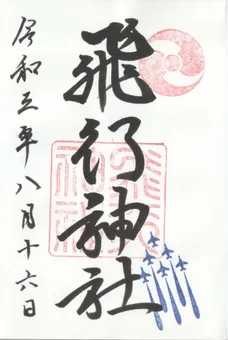 飛行神社
飛行
神社
令和五年八月十六日